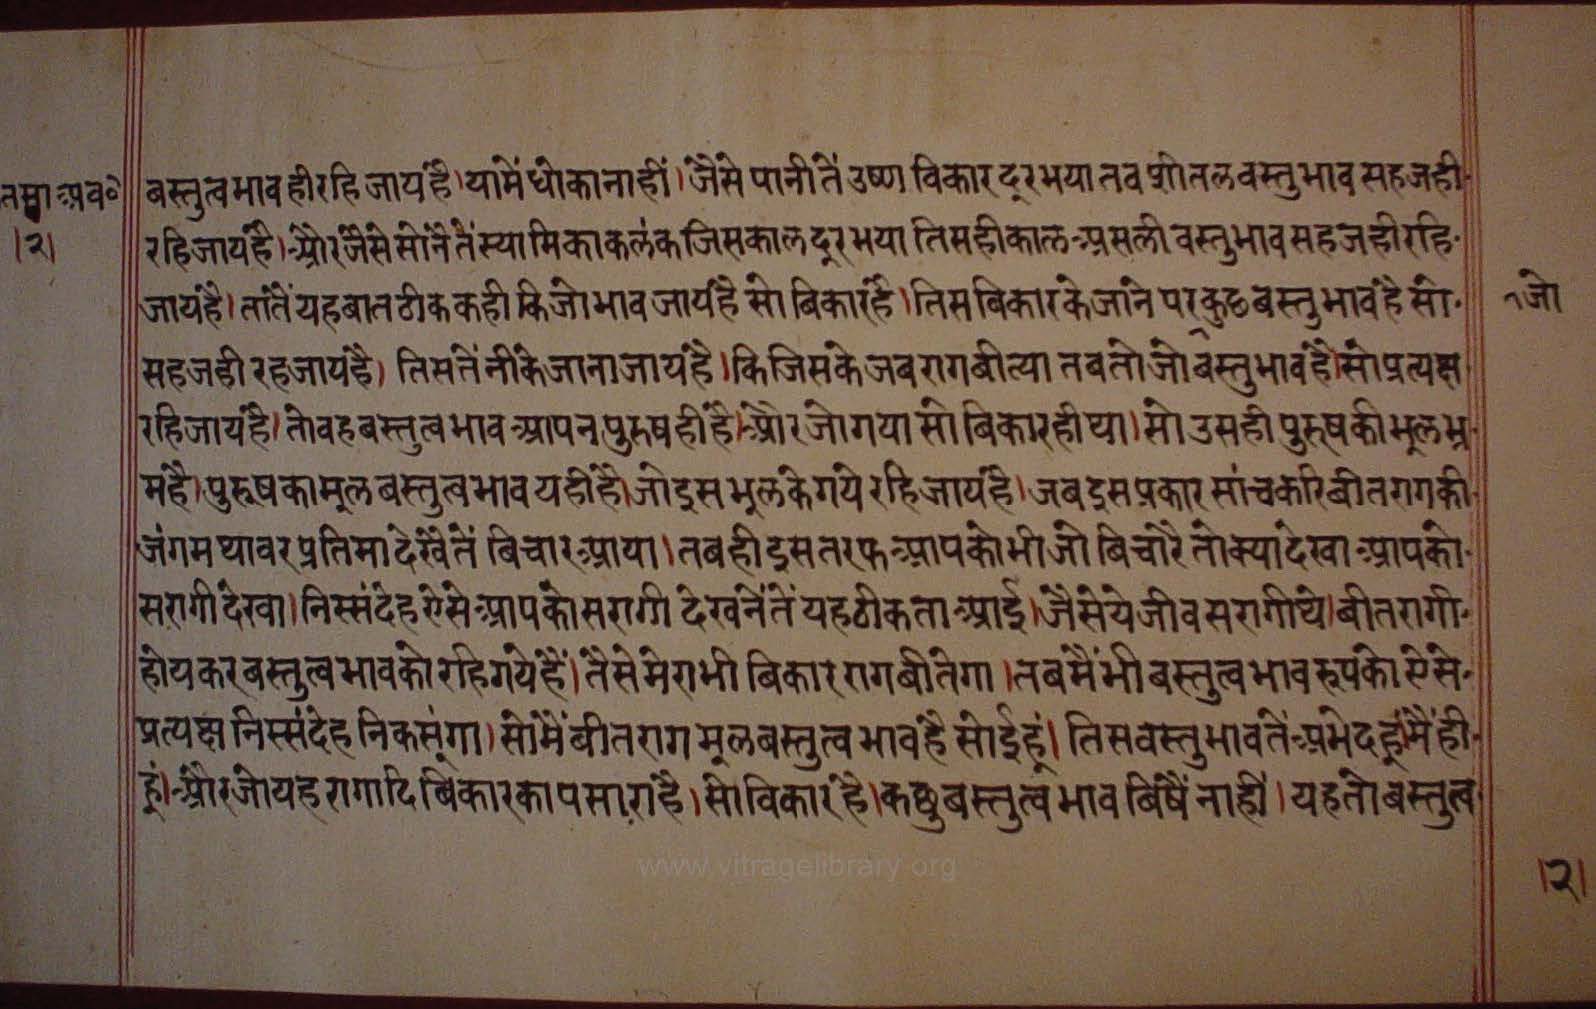 बस्तुत्वभावहीरहिजायहै।यामेंधोकानाहीं।जैसेपानीतेंउष्णविकारदूरभयातबशीतलवस्तुभावसहजही
।२।
रहिजायहै।औरजैसेसोंनैतैंस्यामिकाकलंकजिसकालदूरभयातिसहीकालअसलीवस्तुभावसहजहीरहि
जायहै।तांतेंयहबातठीककहीकिजोभावजायहैसोबिकारहै।तिसबिकारकेजानेपरकुछबस्तुभावहैसो
जो
सहजहीरहजायहै।तिसतेंनीकेजानाजायहै।किजिसकेजबरागबीत्यातबतोजोबस्तुभावहै।सोप्रत्यक्ष
रहिजायहै।तोवहबस्तुत्वभावआपनपुरुषहीहै।औरजोगयासोबिकारहीथा।सोउसहीपुरुषकीभूलभ्र
महै।पुरुषकामूलबस्तुत्वभावयहीहै।जोइसभूलकेगयेरहिजायहै।जबइसप्रकारसांचकरिबीतरागकी
जंगमथावरप्रतिमादेखैतेंबिचारआया।तबहीइसतरफआपकोभीजोबिचारैतोक्यादेखाआपको
सरागीदेखा।निस्संदेहऐसेआपकोसरागीदेखनेंतेंयहठीकताआई।जैसेयेजीवसरागीथे।बीतरागी
होयकरबस्तुत्वभावकोरहिगयेहैं।तैसेमेराभीबिकाररागबीतेगा।तबमैंभीबस्तुत्वभावरूपकोऐसे
प्रत्यक्षनिस्संदेहनिकसूंगा।सोमैंबीतरागमूलबस्तुत्वभावहैसोईहूं।तिसवस्तुभावतेंअभेदहूं।मैंही
हूं।औरजोयहरागादिबिकारकापसाराहै।सोविकारहै।कछुबस्तुत्वभावबिषैंनाहीं।यहतोबस्तुत्व
।२।
www.vitragelibrary.org